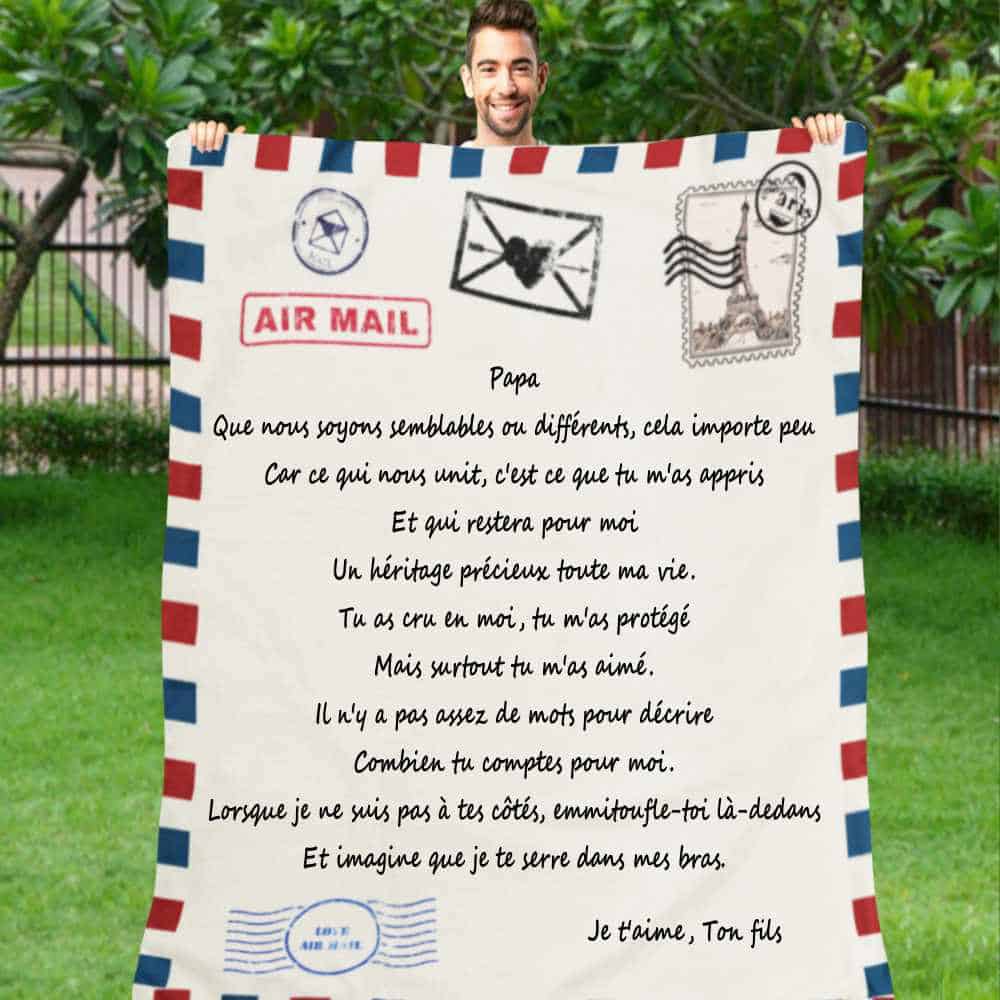 MAIL
Paris
AIR MAIL
Papa
Que nous soyons semblables ou différents, cela importe peu
Car ce qui nous unit, c'est ce que tu m'as appris
Et qui restera pour moi
Un héritage précieux toute ma vie.
Tu as cru en moi, tu m'as protégé
Mais surtout tu m'as aimé.
Il n'y a pas assez de mots pour décrire
Combien tu comptes pour moi.
Lorsque je ne suis pas à tes côtés, emmitoufle-toi là-dedans
Et imagine que je te serre dans mes bras.
Je t'aime, Ton fils
LOVE
AIR MAIL